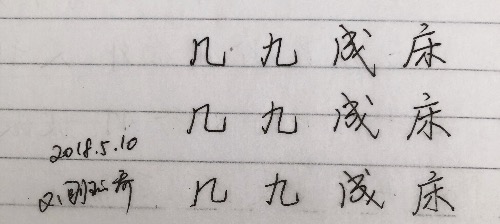 几 九 成 床
几 九 成 床
2018.5.10
几 九 成 床